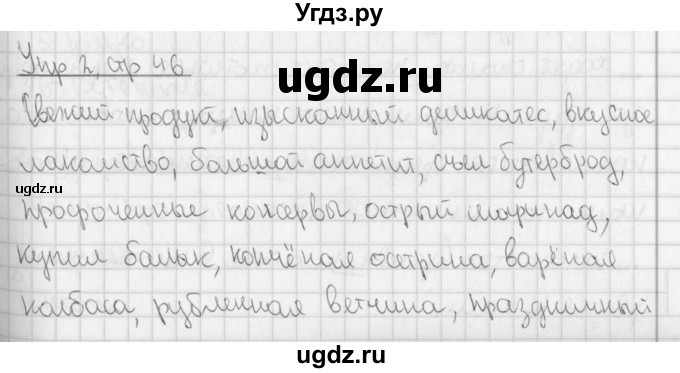 Угдз.ру
Упр 2, стр 46
ugdz.ru
Свежий продукт, изысканный деликатес, вкусное
лакомство, большой аппетит, съел бутерброд,
ugdz.ru
просроченные консервы, острый маринад,
купил балык, копчёная осетрина, варёная
колбаса, рубленная ветчина, праздничный
ugdz.ru